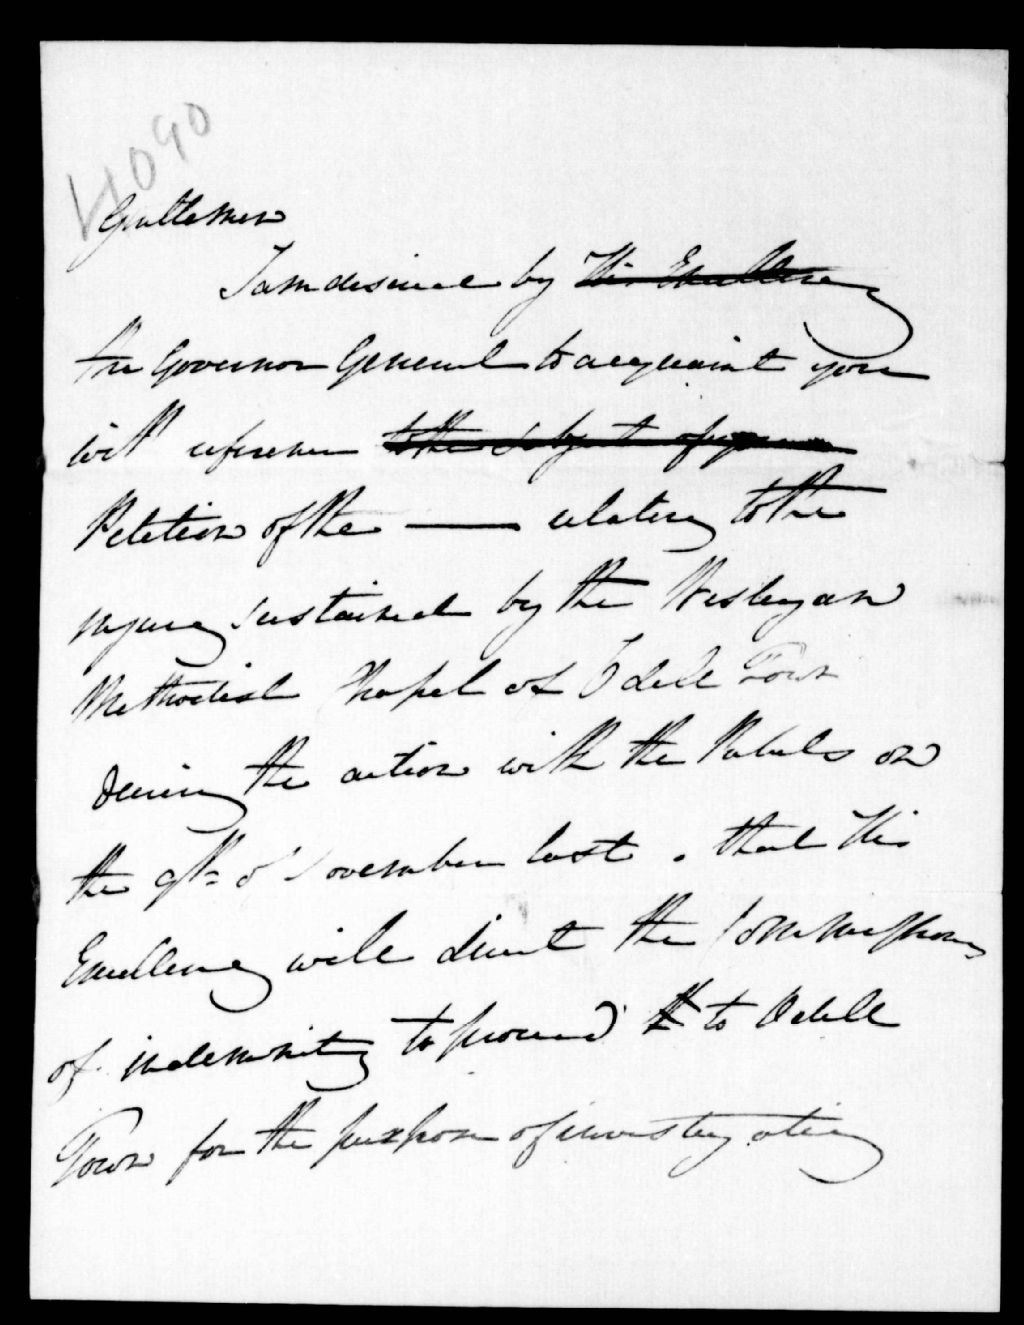 4090
Gentlemen
I am desired by His Excellency
the Governor General to acquaint you
with reference to the subject of your
Petition of the —— relating to the
injury sustained by the Wesleyan
Methodist Chapel of Odell Town
during the action with the Rebels on
the 9th of November last. that His
Excellency will direct the Commissioners
of indemnity to proceed to Odell
Town for the purpose of investigating